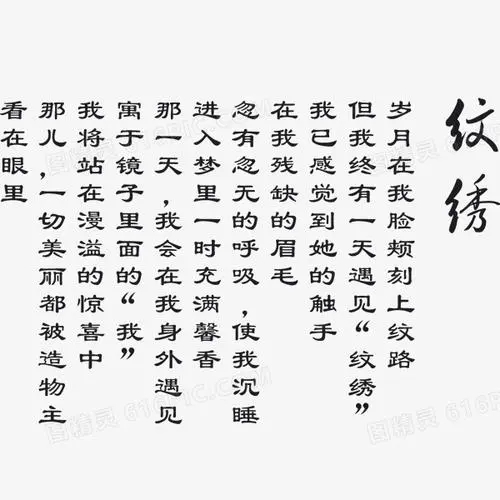 纹绣
岁月在我脸颊刻上纹路
但我终有一天遇见“纹绣”
我已感觉到她的触手
在我残缺的眉毛
忽有忽无的呼吸，使我沉睡
进入梦里一时充满馨香
那一天，我会在我身外遇见
寓于镜子里面的“我”
我将站在漫溢的惊喜中
那儿，一切美丽都被造物主
看在眼里
图精灵 616PIC.COM